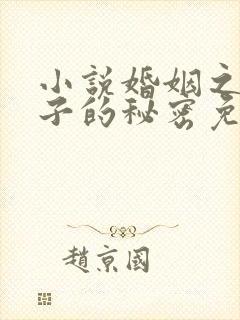 小说婚姻之
子的秘密免
趙京國